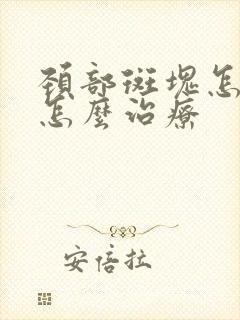 頚部斑塊怎
怎麼治療
安倍拉